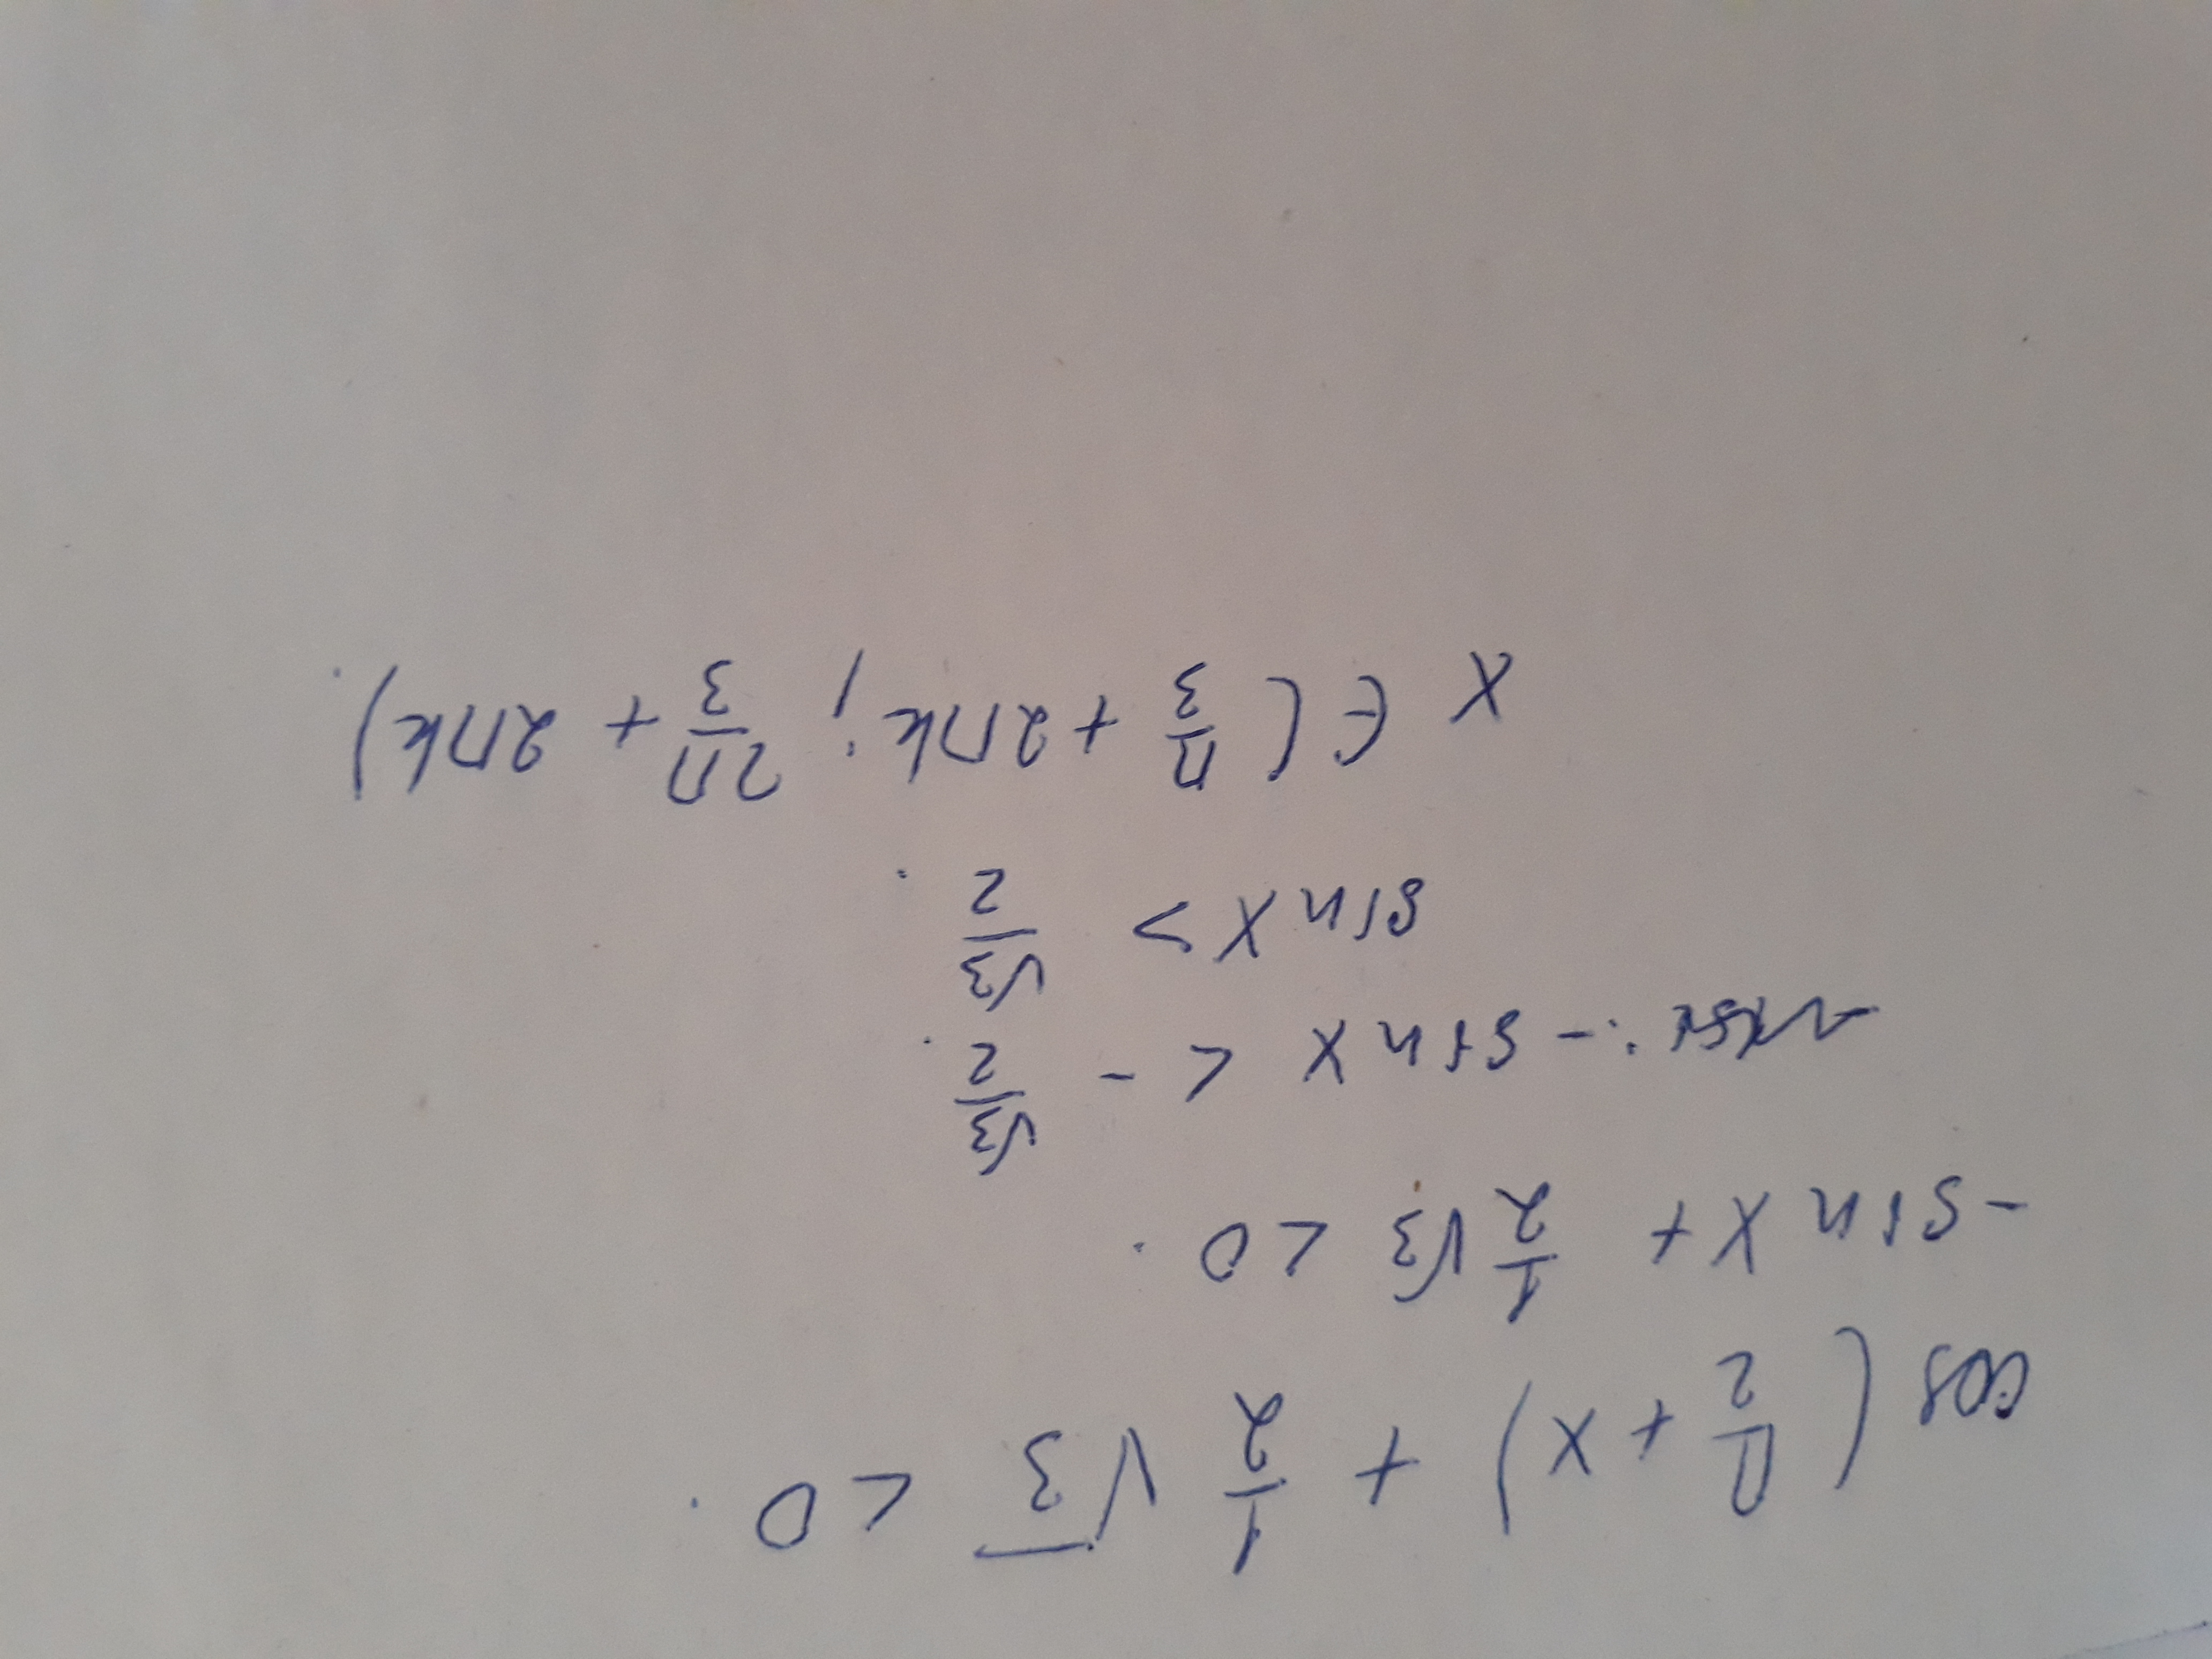 cos(π/2 + x) + 1/2 √3 < 0.
-sin x + 1/2 √3 < 0.
- sin x < - √3/2.
sin x > √3/2.
x ∈ (π/3 + 2πk; 2π/3 + 2πk).